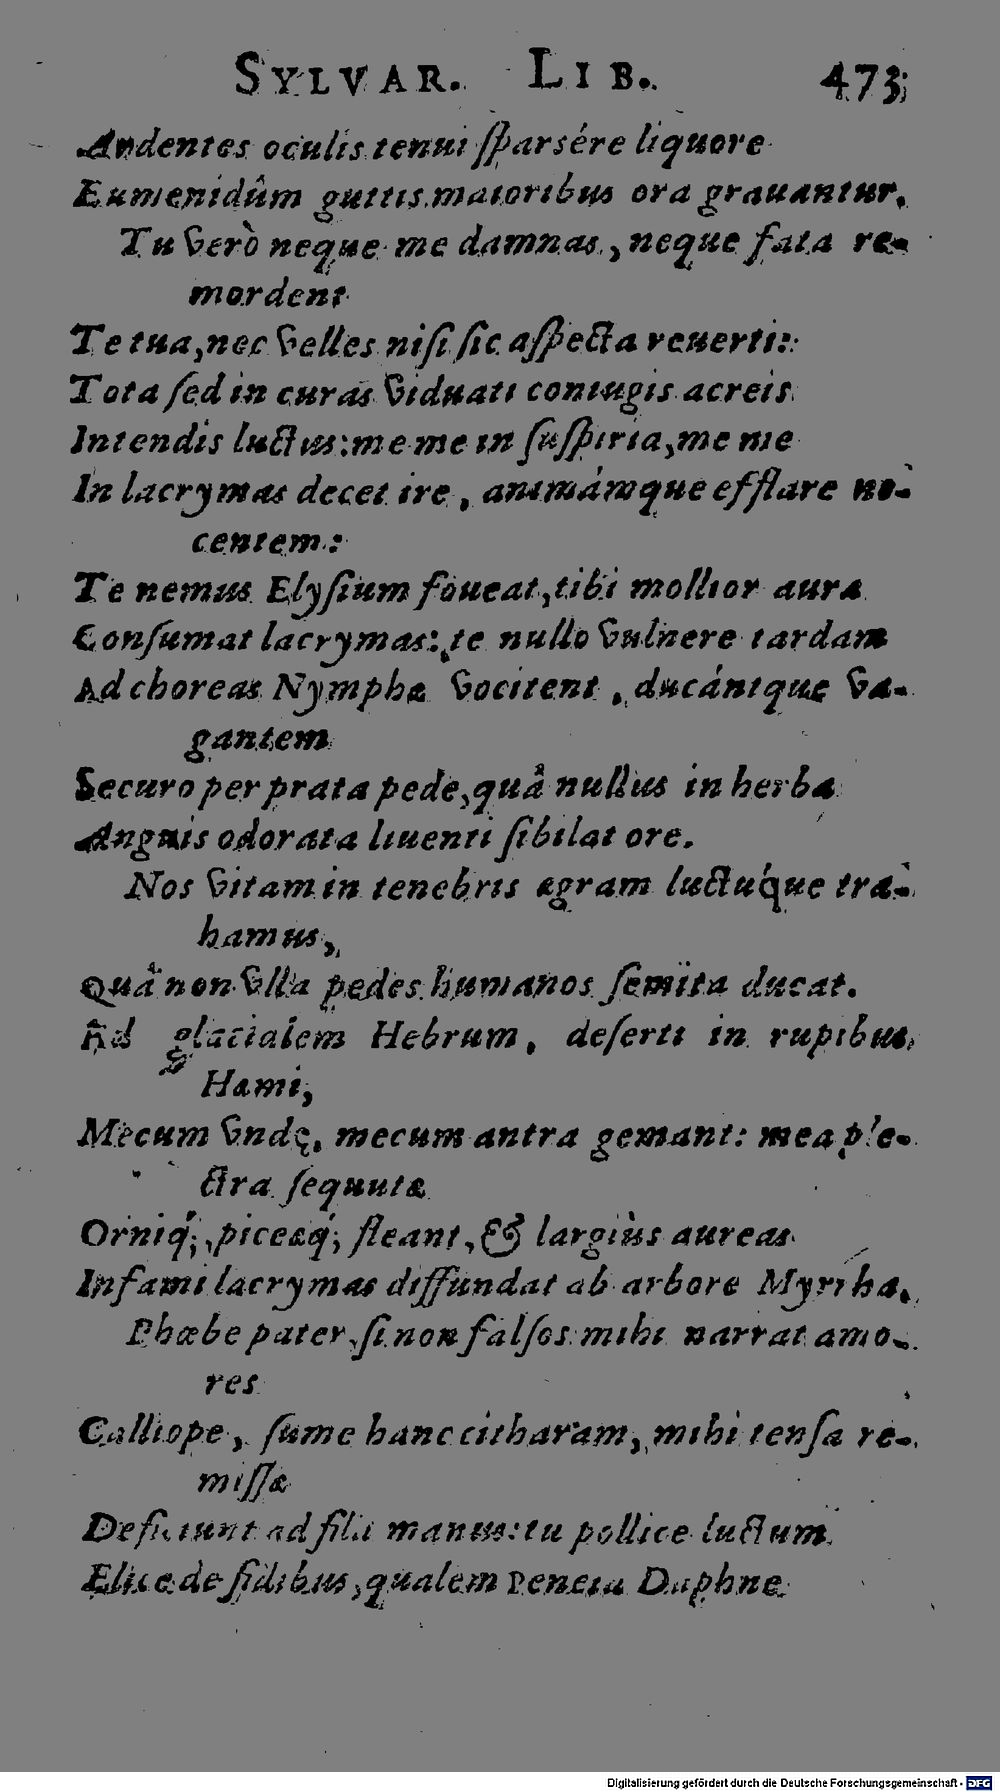 SYLVAR. LIB. 473
Ardentes oculis tenui ſparsére liquore
Eumenidûm guttis maioribus ora grauantur.
Tu verò neque me damnas, neque fata re-
mordent
Te tua, nec velles niſi ſic aſpecta reuerti:
Tota ſed in curas viduati coniugis acreis
Intendis luctus: me me in ſuſpiria, me me
In lacrymas decet ire, animámque efflare no-
centem:
Te nemus Elyſium foueat, tibi mollior aura
Conſumat lacrymas: te nullo vulnere tardam
Ad choreas Nymphæ vocitent, ducántque va-
gantem
Securo per prata pede, quâ nullus in herba
Anguis odorata liuenti ſibilat ore.
Nos vitam in tenebris ægram luctúque tra-
hamus,
Quâ non vlla pedes humanos ſemita ducat.
Ad glacialem Hebrum, deſerti in rupibus
Hæmi,
Mecum vndę, mecum antra gemant: mea ple-
ctra ſequutæ
Orniq́; piceæq́; fleant, & largiùs aureas
Infami lacrymas diffundat ab arbore Myrrha.
Phœbe pater, ſi non falſos mihi narrat amo-
res
Calliope, ſume hanc citharam, mihi tenſa re-
miſſæ
Deficiunt ad fila manus: tu pollice luctum
Elice de fidibus, qualem Peneia Daphne
Digitalisierung gefördert durch die Deutsche Forschungsgemeinschaft - DFG